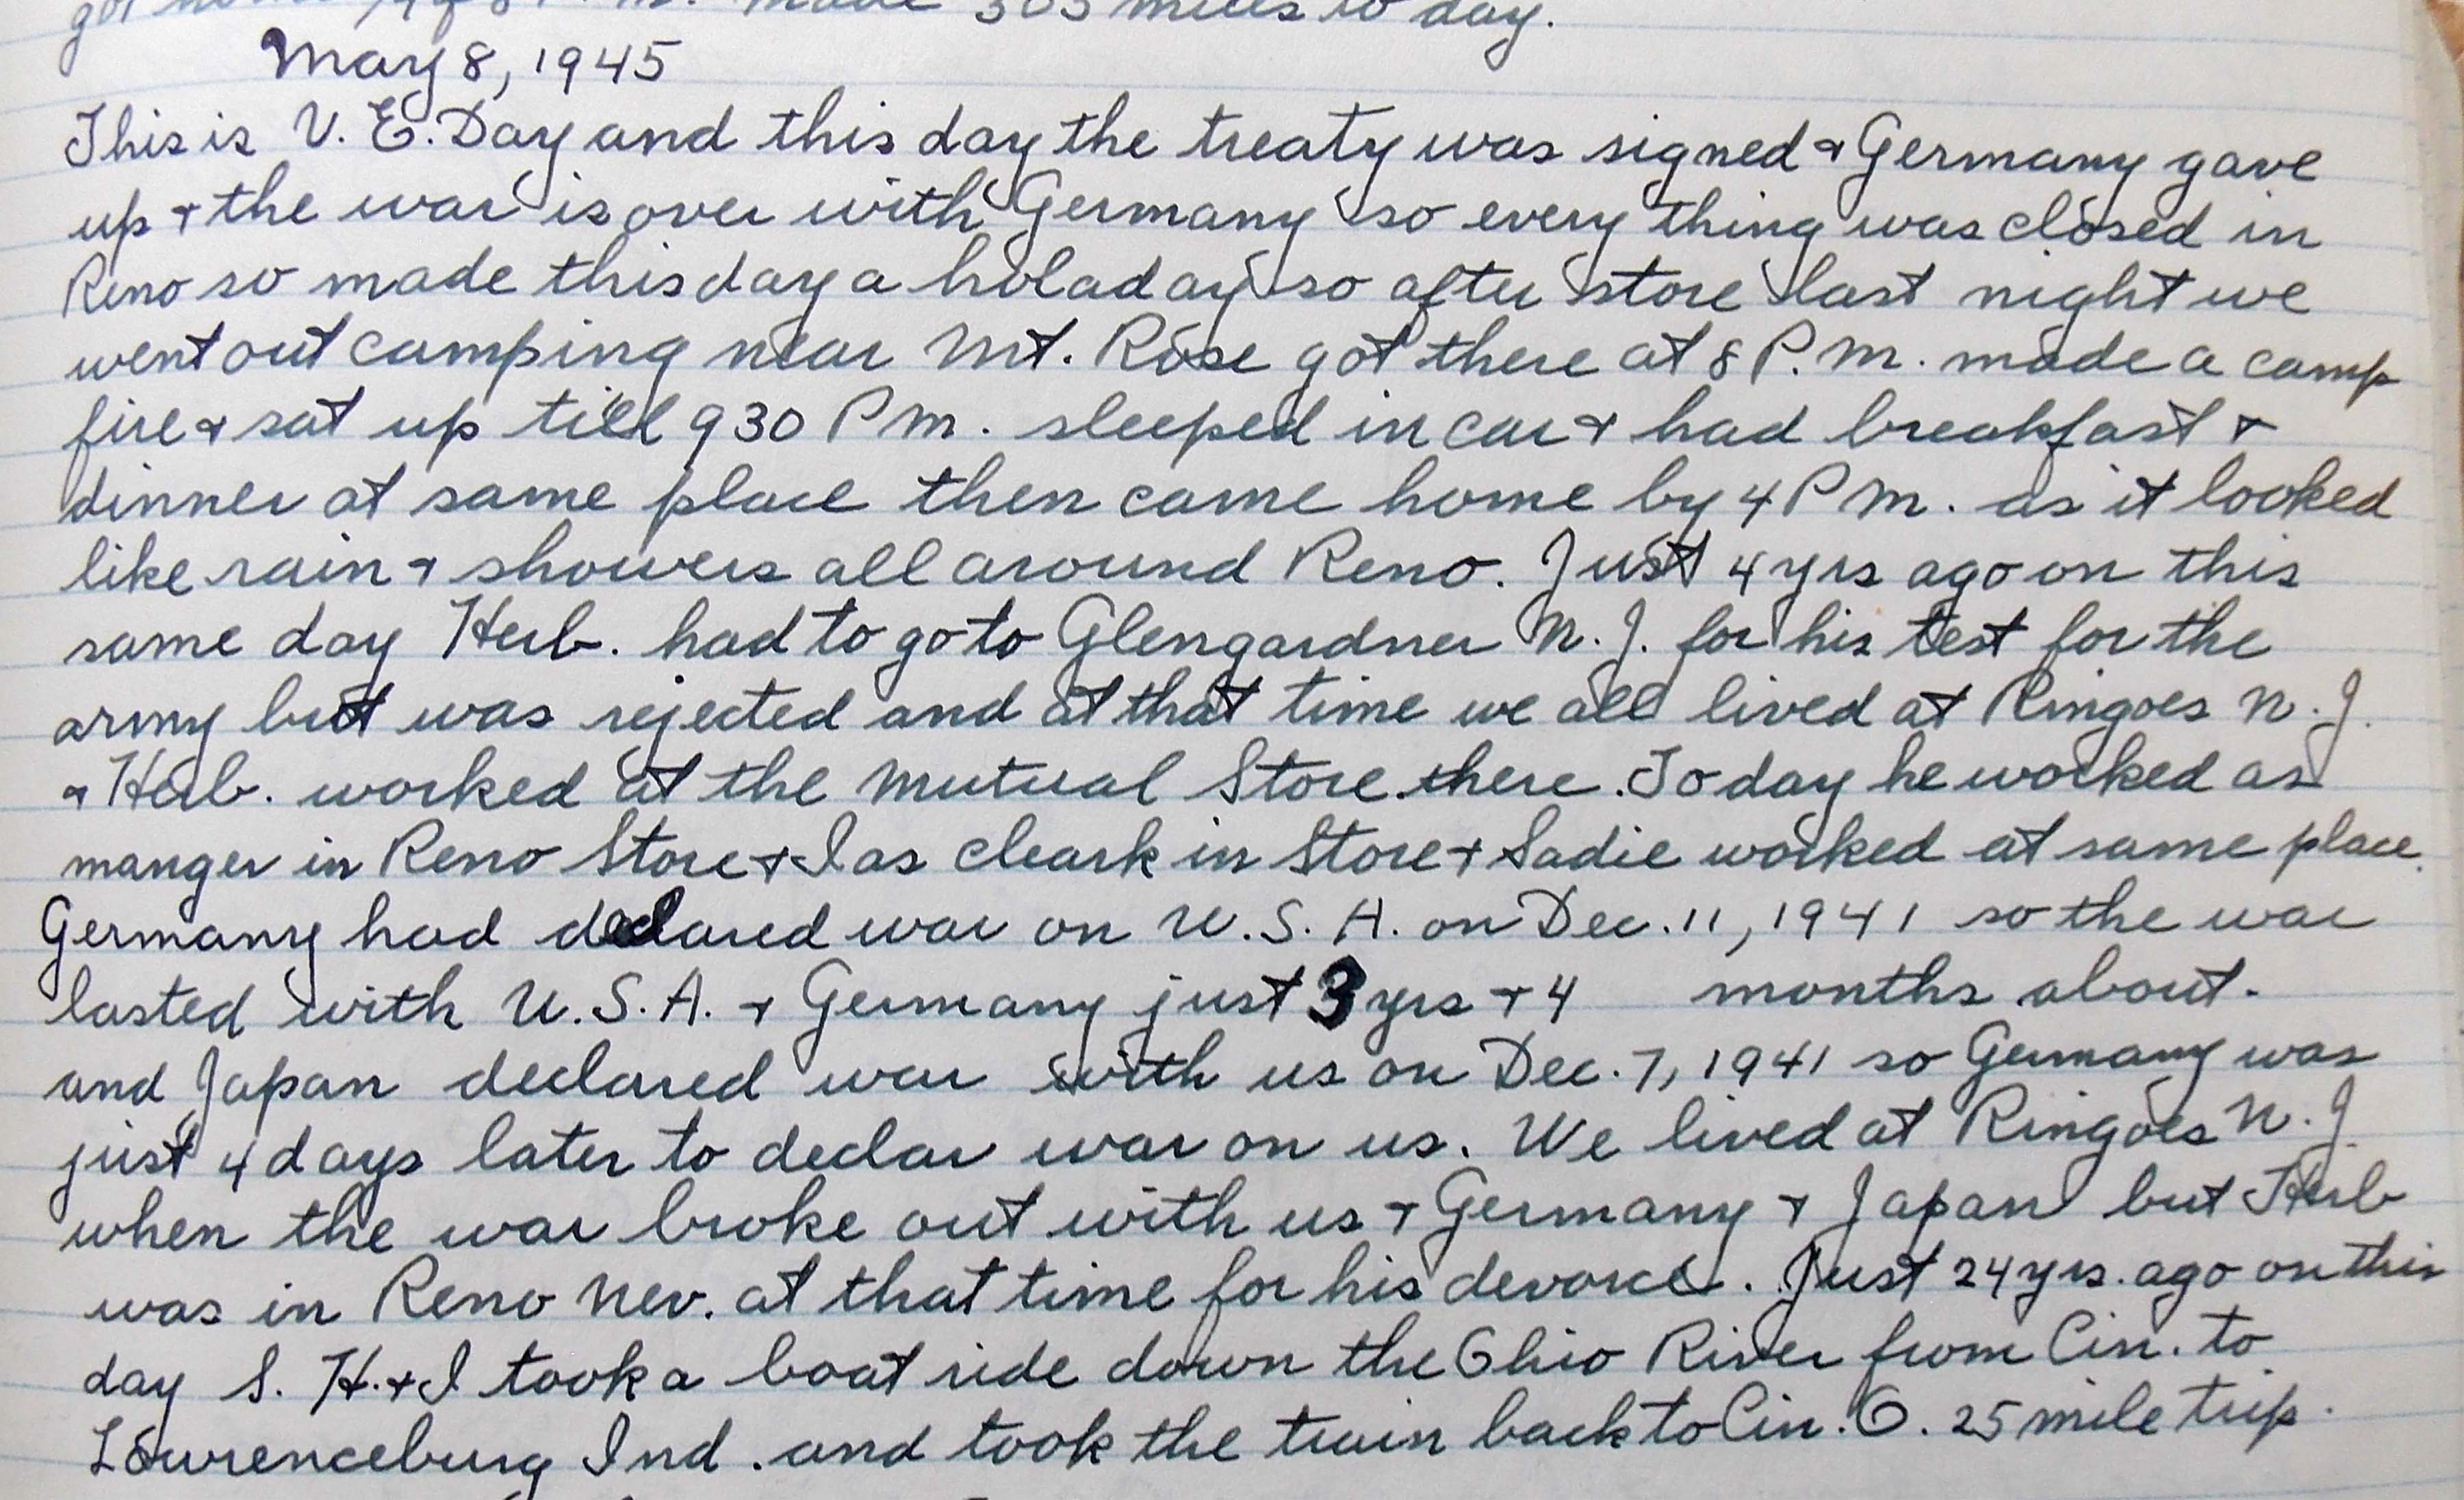 got home made 303 miles to day.
May 8, 1945
This is V. E. Day and this day the treaty was signed & Germany gave
up & the war is over with Germany so every thing was closed in
Reno so made this day a holaday so after store last night we
went out camping near Mt. Rose got there at 8 P. M. made a camp
fire & sat up till 930 P M. sleeped in car & had breakfast &
dinner at same place then came home by 4 P M. as it looked
like rain & showers all around Reno. Just 4 yrs ago on this
same day Herb. had to go to Glengardner N. J. for his test for the
army but was rejected and at that time we all lived at Ringoes N. J.
& Herb. worked at the Mutual Store there. To day he worked as
manger in Reno Store & I as cleark in Store & Sadie worked at same place.
Germany had declared war on U. S. A. on Dec. 11, 1941 so the war
lasted with U. S. A. & Germany just 3 yrs & 4 months about.
and Japan declared war with us on Dec. 7, 1941 so Germany was
just 4 days later to declar war on us. We lived at Ringoes N. J.
when the war broke out with us & Germany & Japan but Herb
was in Reno Nev. at that time for his devorce. Just 24 yrs. ago on this
day S. H. & I took a boat ride down the Ohio River from Cin. to
Lawrenceburg Ind. and took the train back to Cin. O. 25 mile trip.